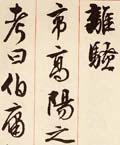 離騷
帝高陽之
考曰伯庸